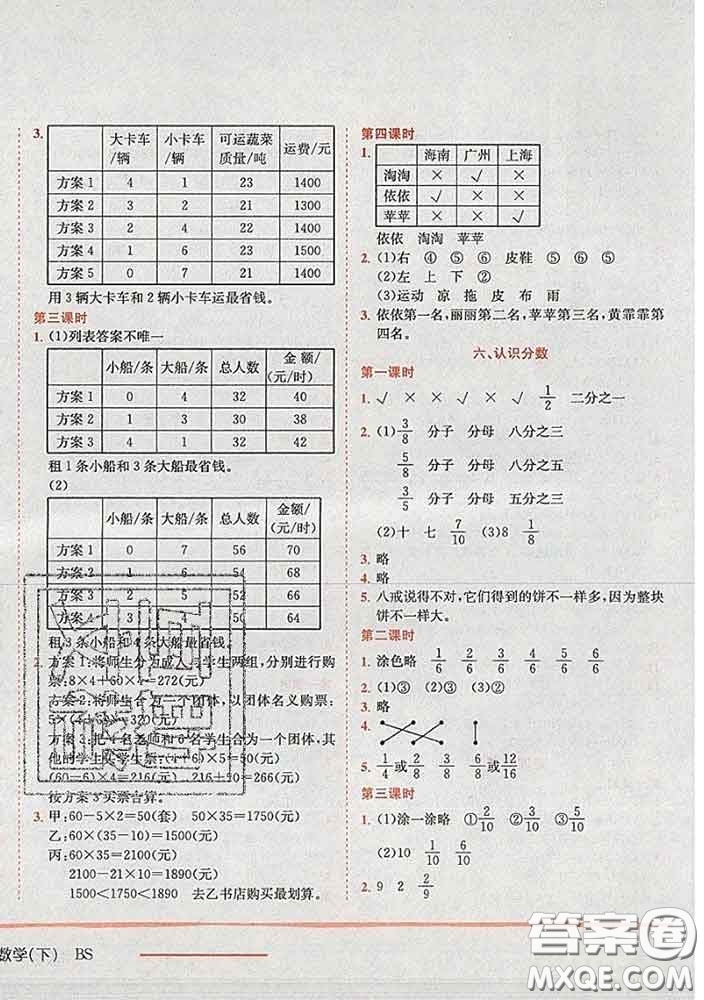 3.
大卡车/辆 小卡车/辆 可运蔬菜质量/吨 运费/元
方案1 4 1 23 1400
方案2 3 2 21 1300
方案3 2 4 22 1400
方案4 1 6 23 1500
方案5 0 7 21 1400
用3辆大卡车和2辆小卡车运最省钱。
第三课时
1. (1)列表答案不唯一
小船/条 大船/条 总人数 金额/(元/时)
方案1 0 4 32 40
方案2 1 3 30 38
方案3 4 1 32 42
租1条小船和3条大船最省钱。
(2)
小船/条 大船/条 总人数 金额/(元/时)
方案1 0 7 56 70
方案2 1 6 54 68
方案3 2 5 52 66
方案4 3 4 50 64
租3条小船和4条大船最省钱。
2. 方案1:将师生分为成人与学生两组,分别进行购
票:8×4+60×4=272(元)
方案2:将师生合为一个团体,以团体名义购票:
=320(元)
方案3:把4名老师和6名学生合为一个团体,其
他的学生买学生票:(4+6)×5=50(元)
(60-6)×4=216(元) 216+50=266(元)
按方案3买票合算。
3. 甲:60-5×2=50(套) 50×35=1750(元)
乙:60×(35-10)=1500(元)
丙:60×35=2100(元)
2100-21×10=1890(元)
1500<1750<1890 去乙书店购买最划算。
第四课时
1.
海南 广州 上海
淘淘 × √ ×
依依 √ × ×
苹苹 × × √
依依 淘淘 苹苹
2. (1)右 ④ ⑤ ⑥ 皮鞋 ⑤ ⑥
(2)左 上 下 ②
(3)运动 凉 拖 皮 布 雨
3. 依依第一名,丽丽第二名,苹苹第三名,黄霏霏第
四名。
六、认识分数
第一课时
1. √ × × √ × √ 1/2 二分之一
2. (1)3/8 分子 分母 八分之三
5/8 分子 分母 八分之五
3/5 分子 分母 五分之三
(2)十 七 7/10 (3)8 1/8
3. 略
4. 略
5. 八戒说得不对,它们得到的饼不一样多,因为整块
饼不一样大。
第二课时
1. 涂色略 1/6 2/6 3/6 4/6 5/6
2. (1)③ (2)③
3. 略
4.
5. 1/4或2/8 3/8 6/8或12/16
第三课时
1. (1)涂一涂略 ①2/10 ②3/10
(2)10 1/10 6/10
2. 9 2 2/9
数学(下) BS
答案卷
MXQE.COM